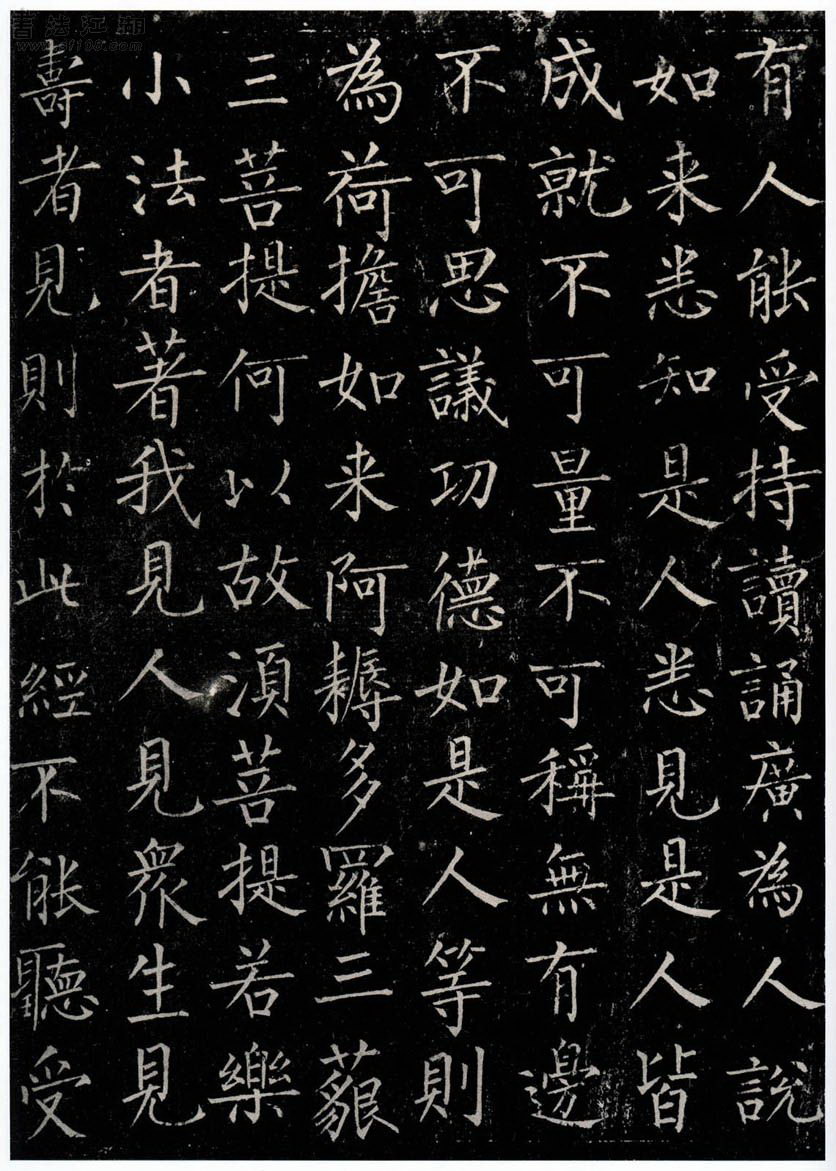 有人能受持讀誦廣為人說
如来悉知是人悉見是人皆
成就不可量不可稱無有邊
不可思議功德如是人等則
為荷擔如来阿耨多羅三藐
三菩提何以故須菩提若樂
小法者著我見人見眾生見
壽者見則於此經不能聽受
書法江湖